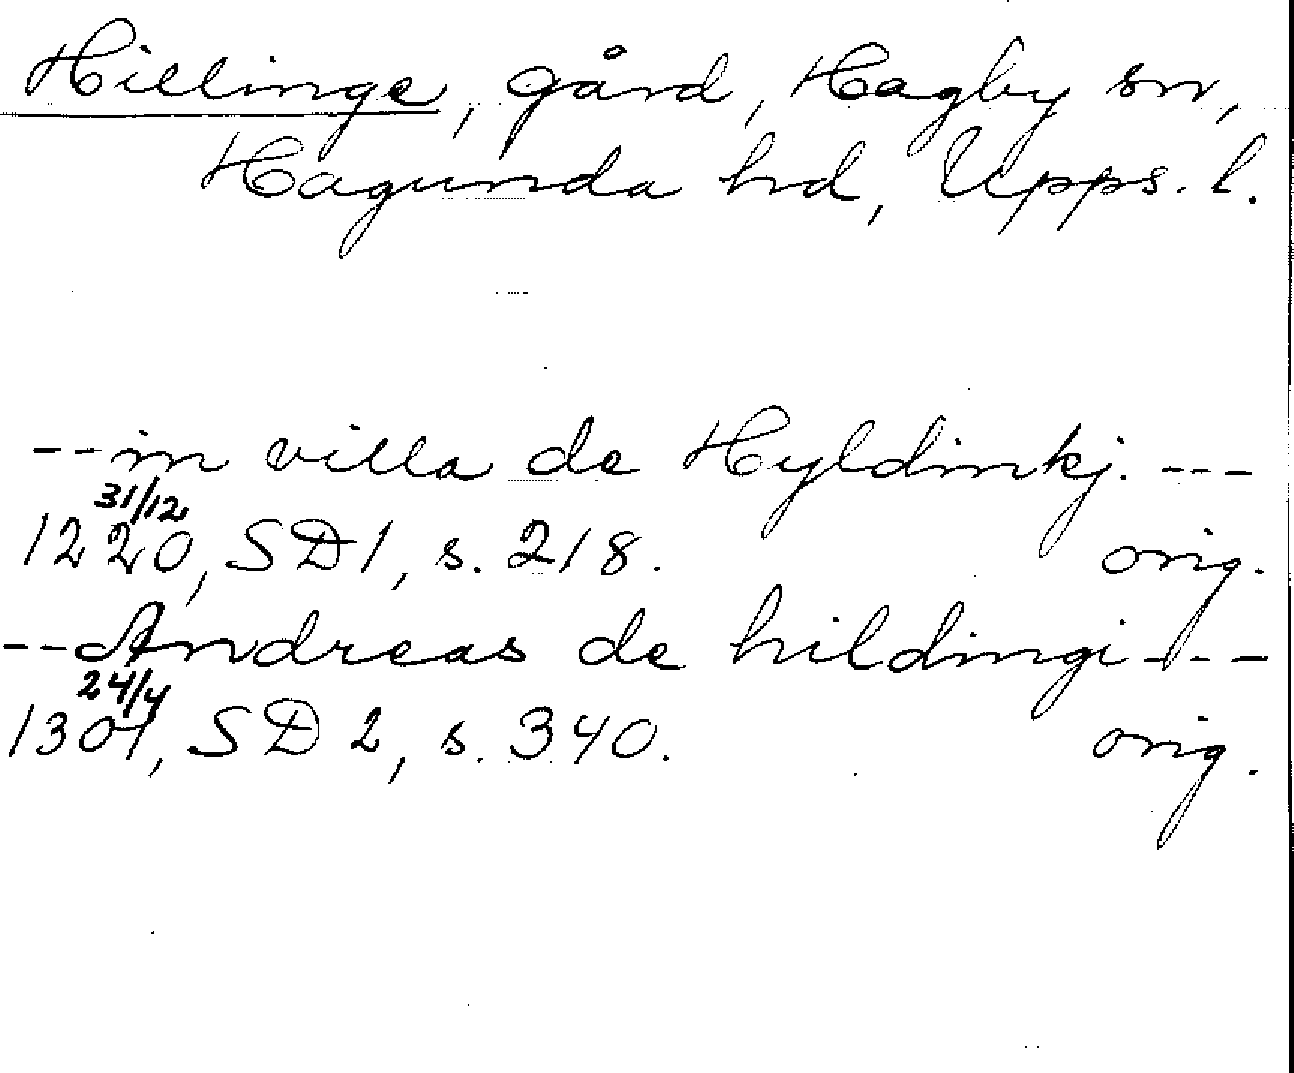 Hillinge, gård, Hagby sn,
Hagunda hd, Upps. l.
--in villa de Hyldinkj. ---
31/12
1220, SD 1, s. 218. orig.
--Andreas de hildingi---
24/4
1301, SD 2, s. 340. orig.